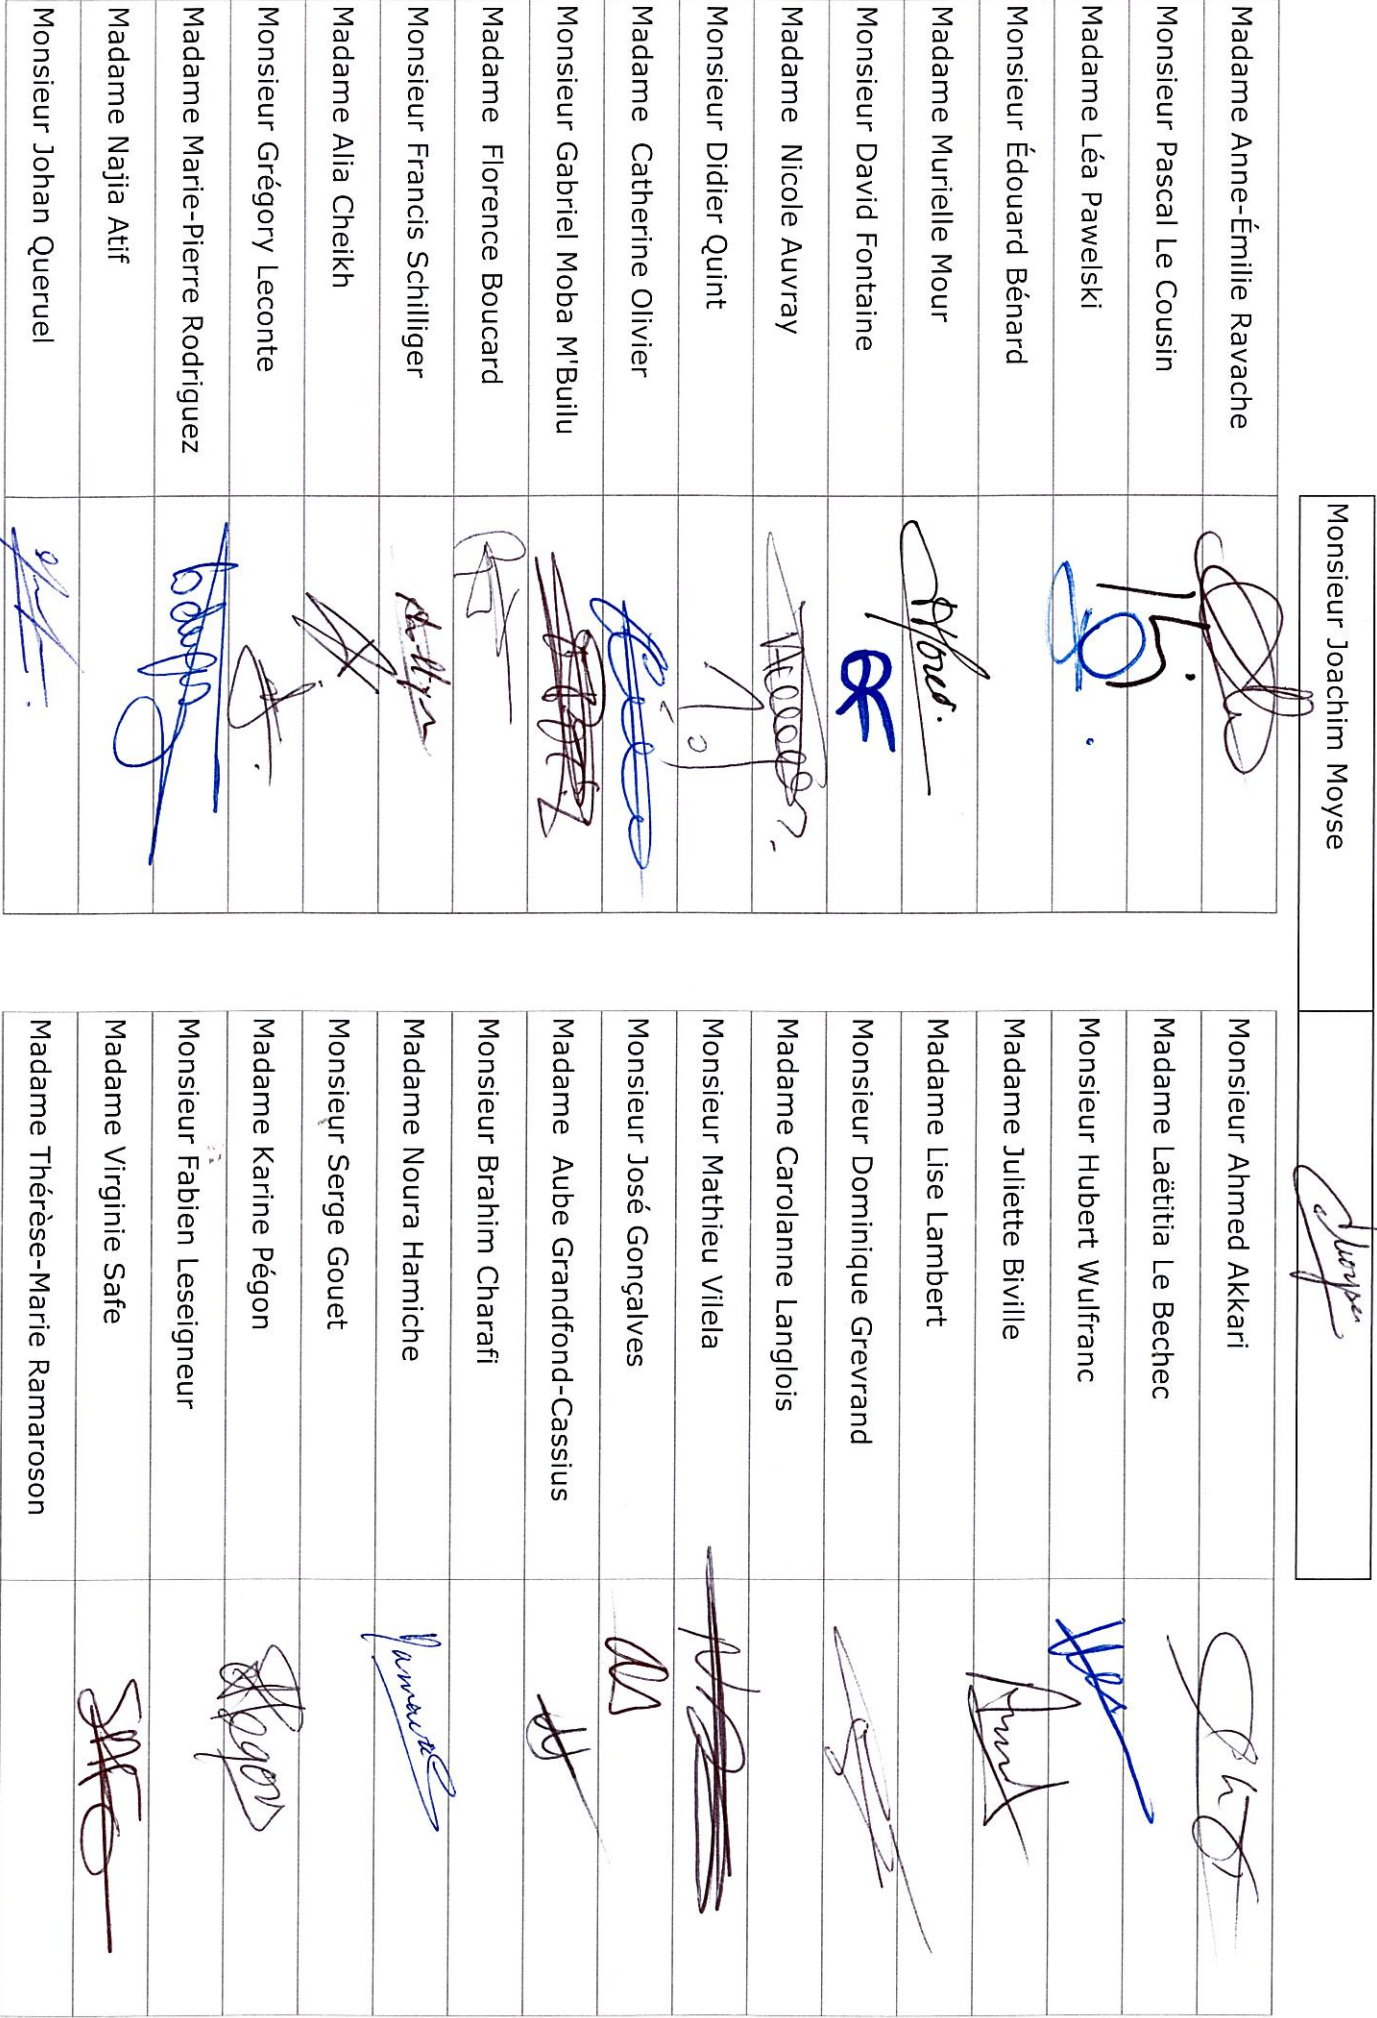 Monsieur Joachim Moyse
Madame Anne-Émilie Ravache
Monsieur Pascal Le Cousin
Madame Léa Pawelski
Monsieur Édouard Bénard
Madame Murielle Mour
Monsieur David Fontaine
Madame Nicole Auvray
Monsieur Didier Quint
Madame Catherine Olivier
Monsieur Gabriel Moba M'Builu
Madame Florence Boucard
Monsieur Francis Schilliger
Madame Alia Cheikh
Monsieur Grégory Leconte
Madame Marie-Pierre Rodriguez
Madame Najia Atif
Monsieur Johan Queruel
Monsieur Ahmed Akkari
Madame Laëtitia Le Bechec
Monsieur Hubert Wulfranc
Madame Juliette Biville
Madame Lise Lambert
Monsieur Dominique Grevrand
Madame Carolanne Langlois
Monsieur Mathieu Vilela
Monsieur José Gonçalves
Madame Aube Grandfond-Cassius
Monsieur Brahim Charafi
Madame Noura Hamiche
Monsieur Serge Gouet
Madame Karine Pégon
Monsieur Fabien Leseigneur
Madame Virginie Safe
Madame Thérèse-Marie Ramaroson